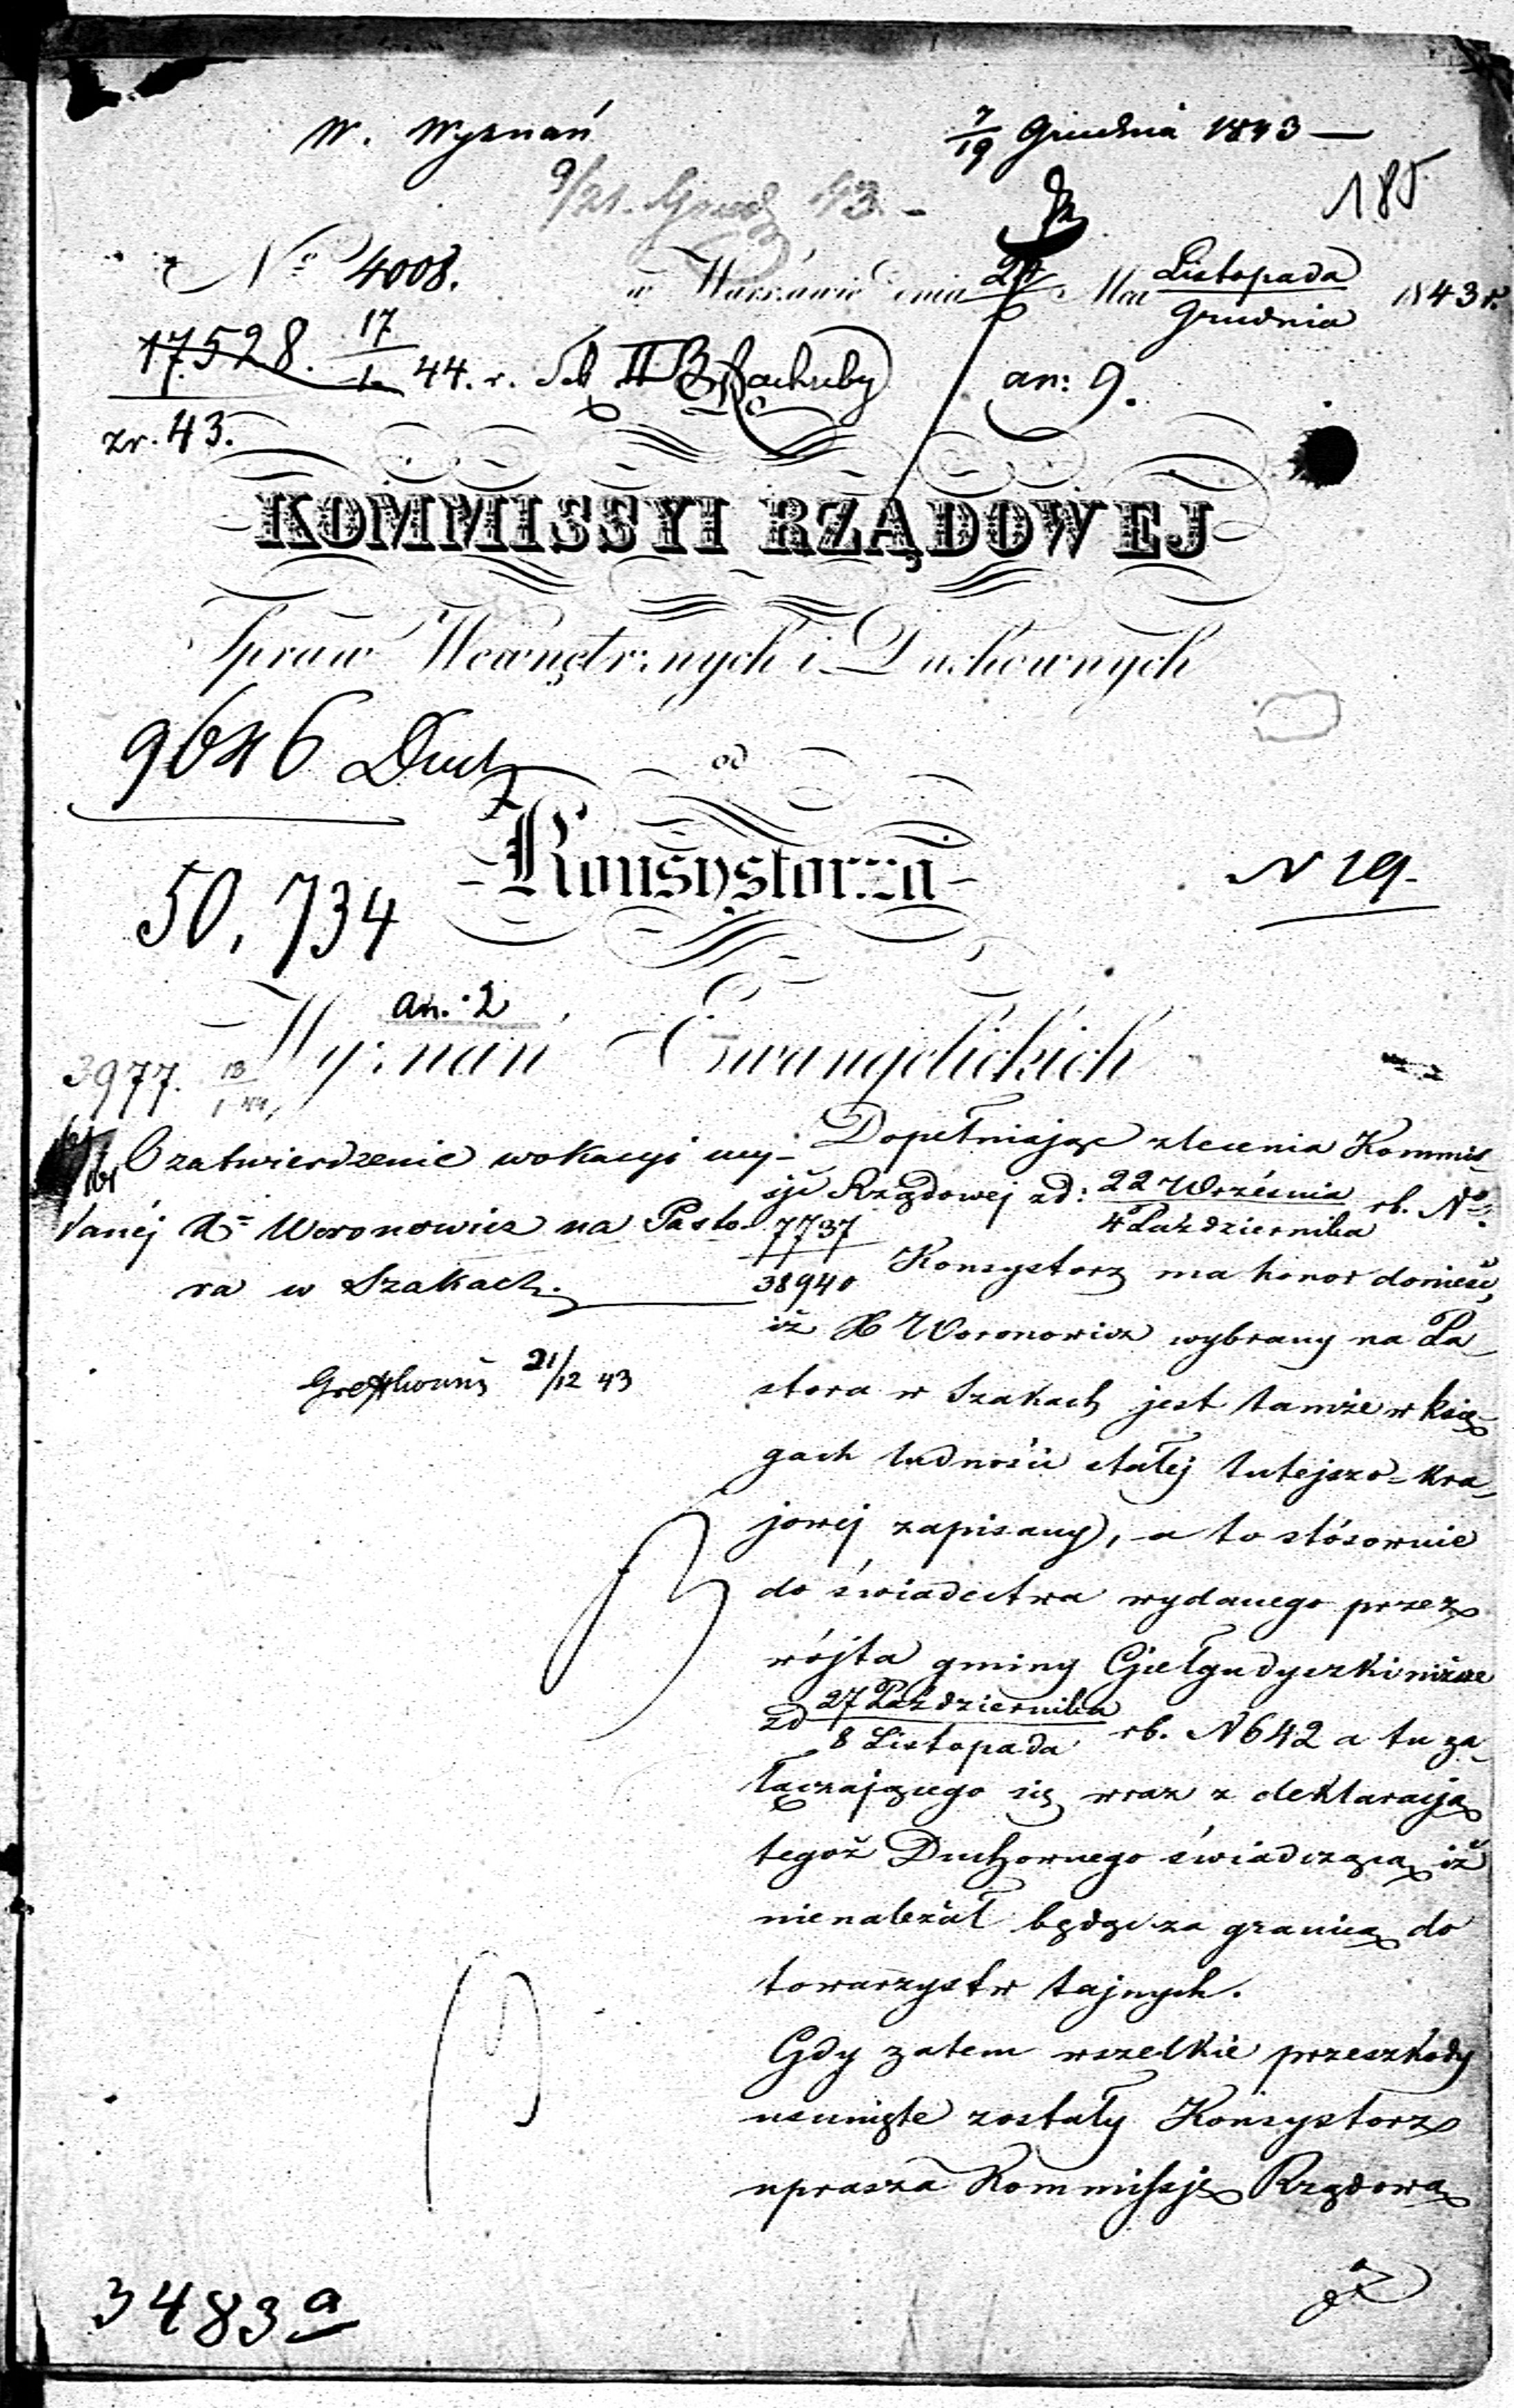 W. Wyznań
7/19 Grudnia 1843 —
9/21. Grud 43. -
185
No 4008.
w Warszawie dnia Mca Listopada/Grudnia 1843 r.
17528. 17/1 44. r. II Rachuby an: 9.
zr. 43.
KOMMISSYI RZĄDOWEJ
Spraw Wewnętrznych i Duchownych
Duch
od
50,734
Konsystorza
N 19.
an. 2
Wyznań Ewangelickich
3977. 13/1 44
O zatwierdzenie wokacyi wy-
danéj Xs Woronowicz na Pasto-
ra w Szakach.
21/12 43
Dopełniając zlecenia Kommis-
syi Rządowej zd: 22 Września/4 Października rb. No
7737/38940 Konsystorz ma honor donieść,
iż X Woronowicz wybrany na Pa-
stora w Szakach jest tamże w księ-
gach ludności stałej tutejszo-kra-
jowej zapisany, a to stósownie
do świadectwa wydanego przez
wójta gminy Giełgudyszki niższe
zd 27 Października/8 Listopada rb. N 642 a tu za-
łączającego się wraz z deklaracją
tegoż Duchownego świadczącą iż
nienależał będąc za granicą do
towarzystw tajnych.
Gdy zatem wszelkie przeszkody
usunięte zostały Konsystorz
uprasza Kommissję Rządową
3483 a